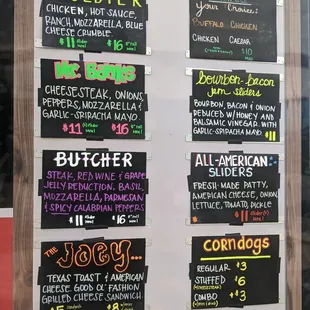 CHICKEN, HOT SAUCE,
RANCH, MOZZARELLA, BLUE
CHEESE CRUMBLE
$11 $16
Mc Bongs
CHEESESTEAK, ONIONS,
PEPPERS, MOZZARELLA &
GARLIC-SRIRACHA MAYO.
$11 $16
BUTCHER
STEAK, RED WINE & GRAPE
JELLY REDUCTION, BASIL,
MOZZARELLA, PARMESAN
& SPICY CALABRIAN PEPPERS
$11 $16
THE JOEY...
TEXAS TOAST & AMERICAN
CHEESE. GOOD OL' FASHION
GRILLED CHEESE SANDWICH.
Your Choice:
BUFFALO CHICKEN
CHICKEN CAESAR
$10
bourbon-bacon
jam sliders
BOURBON, BACON & ONION
REDUCED W/HONEY AND
BALSAMIC VINEGAR. WITH
GARLIC-SRIRACHA MAYO
$11
ALL-AMERICAN
SLIDERS
FRESH-MADE PATTY,
AMERICAN CHEESE, ONION
LETTUCE, TOMATO, PICKLE
$11
corndogs
REGULAR $3
STUFFED $6
COMBO $3